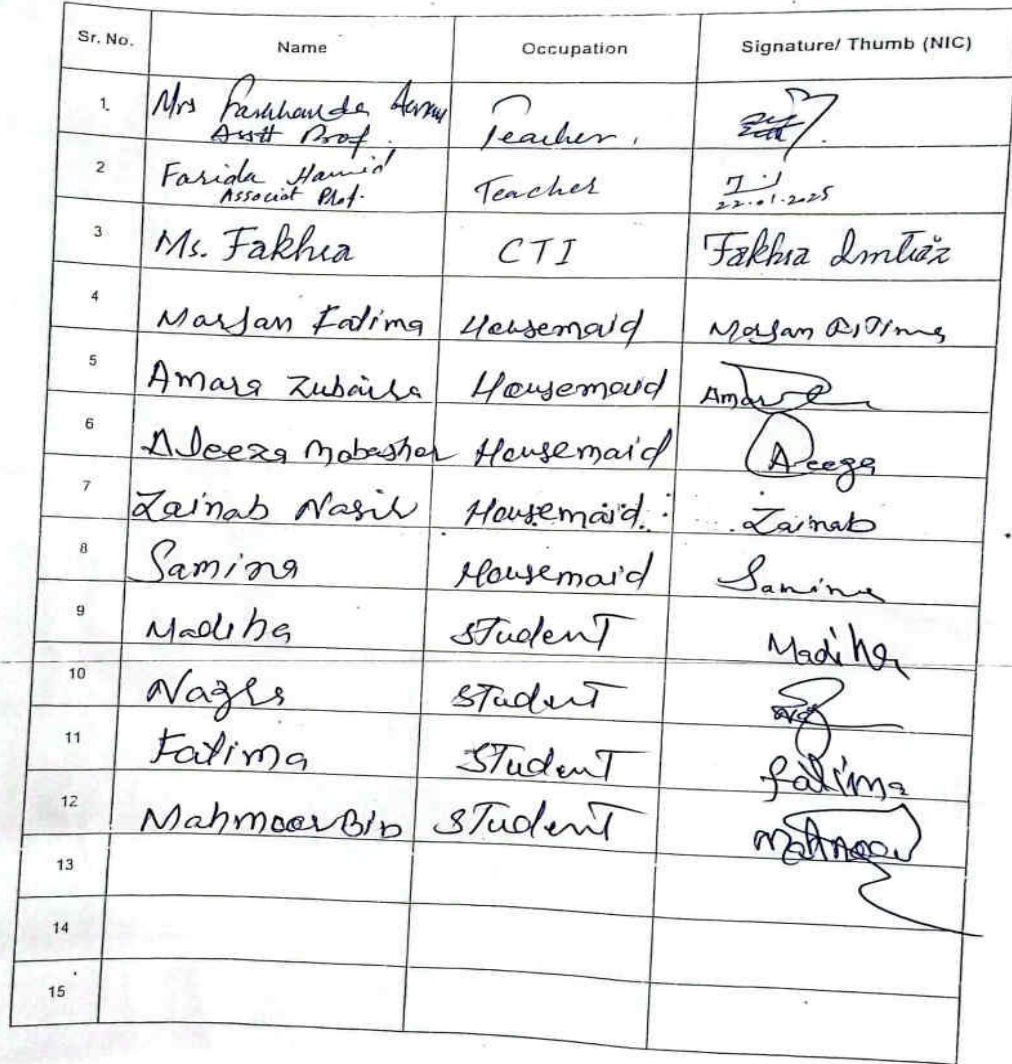 Sr. No. Name Occupation Signature/ Thumb (NIC)
1. Mrs Farkhanda Teacher.
Astt Prof.
2 Farida Hamid Teacher
Associat Prof. 22.01.2025
3 Ms. Fakhra CTI Fakhra Imtiaz
4 Marjan Fatima Housemaid Marjan Fatima
5 Amara Zubaira Housemaid Amara
6 Aleeza Mobashar Housemaid Aleeza
7 Zainab Nasir Housemaid Zainab
8 Samina Housemaid Samina
9 Madiha Student Madiha
10 Student
11 Fatima Student fatima
12 Mahnoor Bib Student Mahnoor
13
14
15